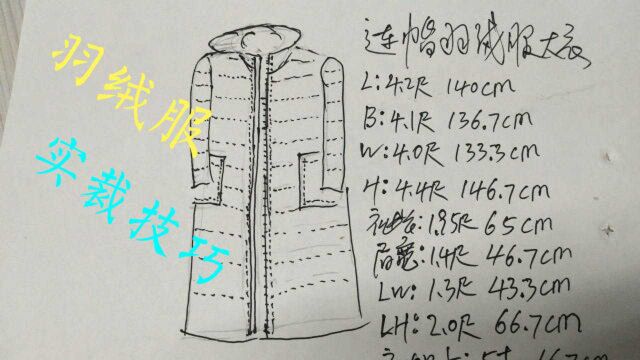 羽绒服
实裁技巧
连帽羽绒服大衣
L:4.2尺 140cm
B:4.1尺 136.7cm
W:4.0尺 133.3cm
H:4.4尺 146.7cm
1.95尺 65cm
肩宽:1.4尺 46.7cm
LW:1.3尺 43.3cm
LH:2.0尺 66.7cm